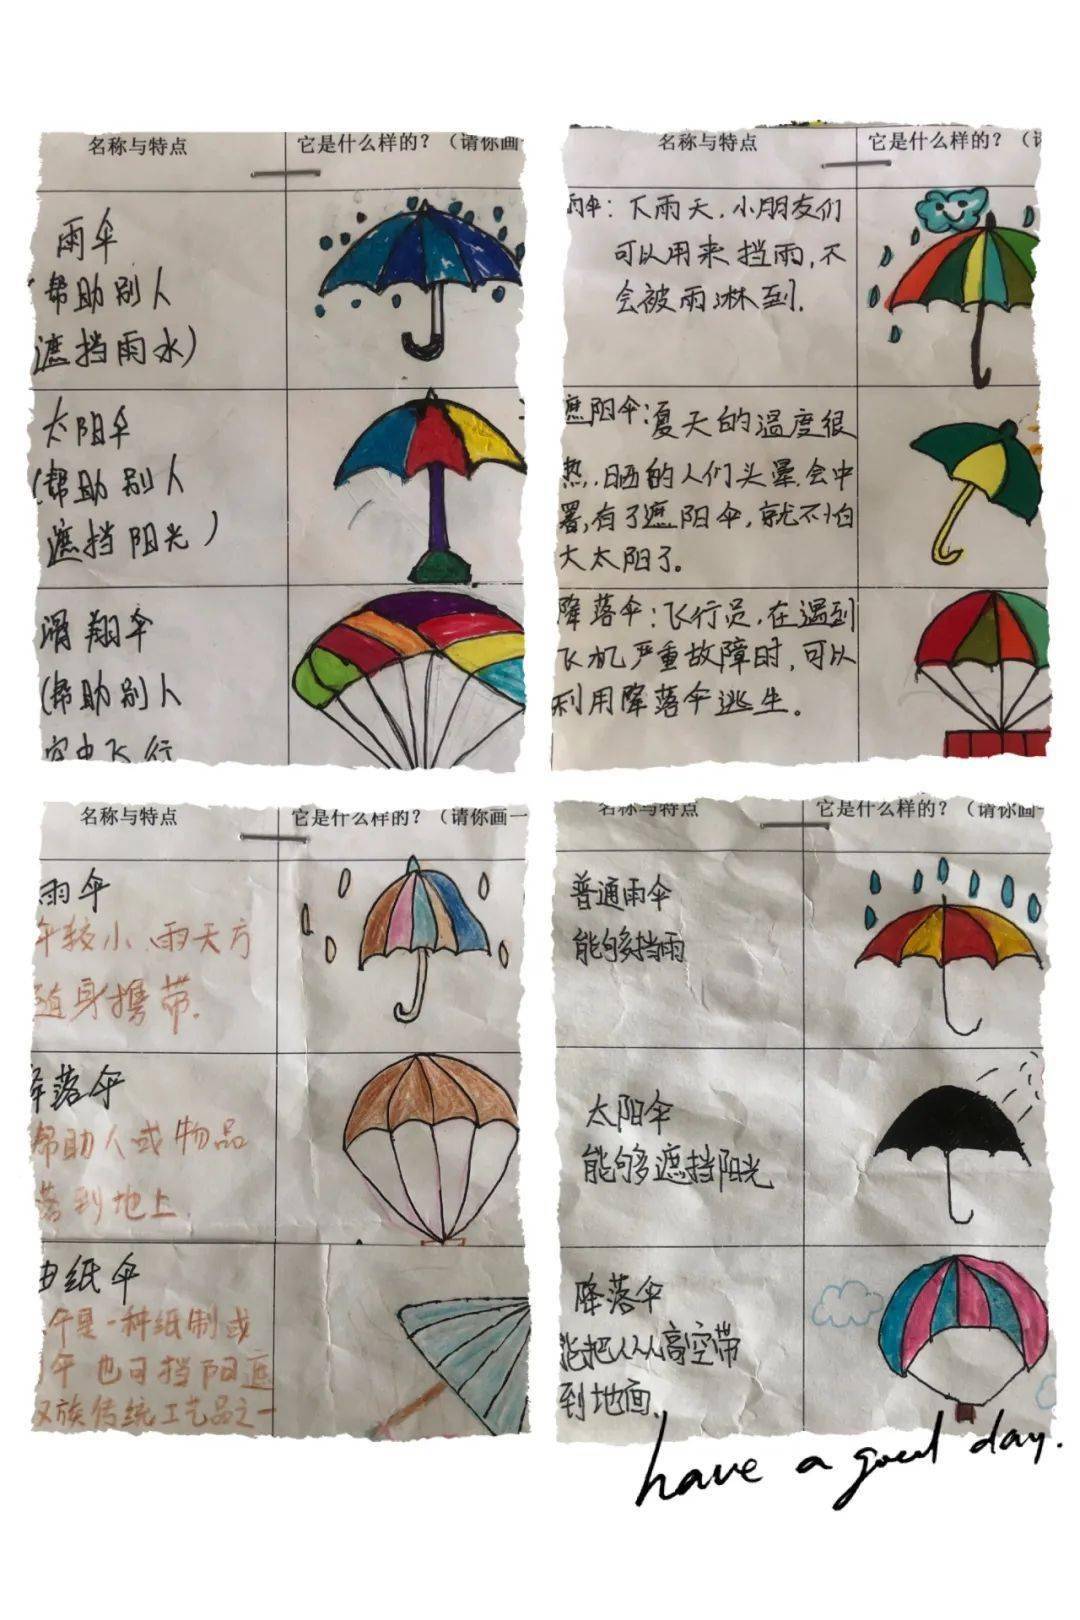 名称与特点
它是什么样的？（请你画一
雨伞
（帮助别人
遮挡雨水）
太阳伞
（帮助别人
遮挡阳光）
滑翔伞
（帮助别人
空中飞行
名称与特点
它是什么样的？（请
雨伞：下雨天，小朋友们
可以用来挡雨，不
会被雨淋到.
遮阳伞：夏天的温度很
热，晒的人们头晕，会中
暑，有了遮阳伞，就不怕
大太阳了。
降落伞：飞行员，在遇到
飞机严重故障时，可以
利用降落伞逃生。
名称与特点
它是什么样的？（请你画一
雨伞
伞较小、雨天方
随身携带.
降落伞
帮助人或物品
落到地上
油纸伞
伞是一种纸制或
伞 也可挡阳遮
汉族传统工艺品之一
名称与特点
它是什么样的？（请你画一
普通雨伞
能够挡雨
太阳伞
能够遮挡阳光
降落伞
能把人从高空带
到地面.
have a good day.